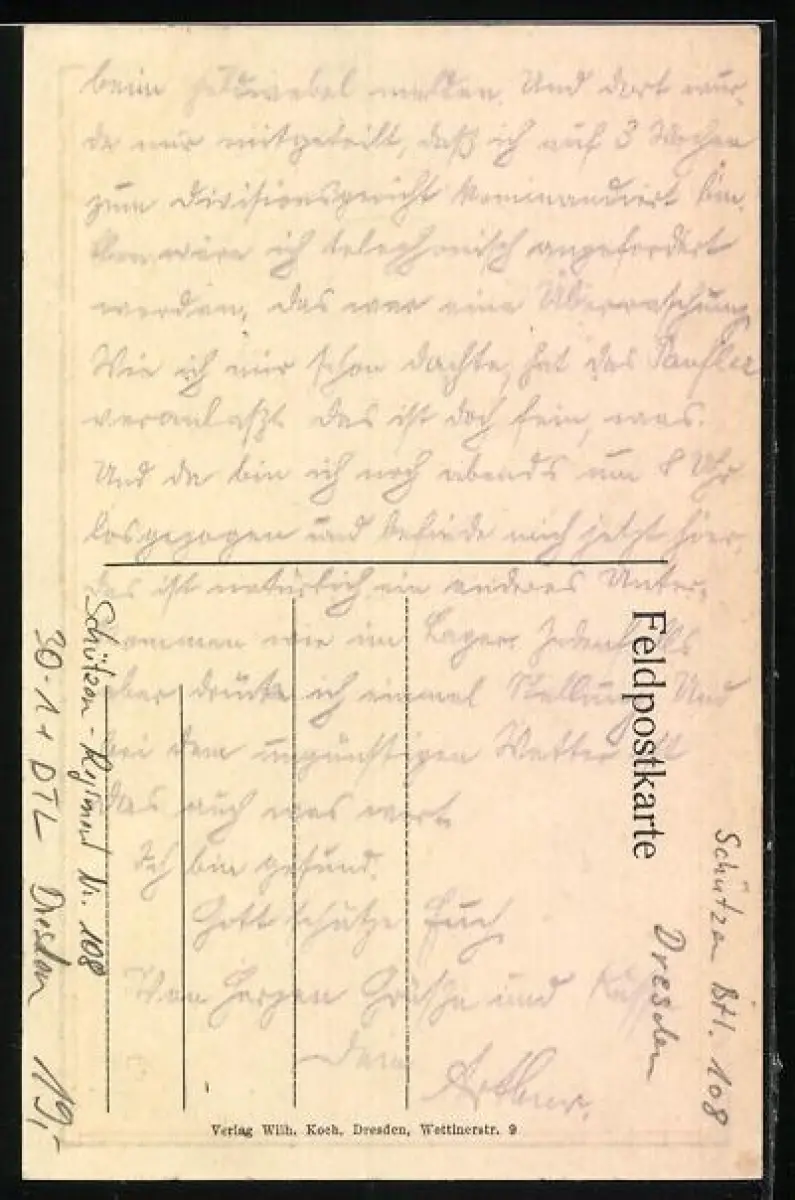 beim Feldwebel melden. Und dort wur-
de mir mitgeteilt, daß ich auf 3 Wochen
zum Divisionsgericht kommandiert bin.
wäre ich telephonisch angefordert
worden, das war eine Überraschung
Wie ich mir schon dachte, hat das
veranlaßt. Das ist doch fein, was.
Und da bin ich noch abends um 8 Uhr
losgezogen und befinde mich jetzt hier,
das ist natürlich ein anderes Unter-
kommen wie im Lager. Jedenfalls
aber drücke ich einmal Stellung. Und
bei dem ungünstigen Wetter ist
das auch was wert.
Ich bin gesund.
Gott schütze Euch
Von Herzen Grüße und Küsse
Dein
Arthur.
Feldpostkarte
Schützen Btl. 108
Dresden
Schützen-Regiment Nr. 108
30-1+ DTL Dresden 19,-
Verlag Wilh. Koch, Dresden, Wettinerstr. 9